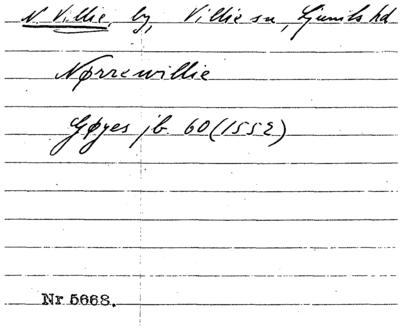 N. Villie, by, Villie sn, Ljunits hd
Nørrewillie
Gøyes jb. 60 (1552)
Nr 5668.